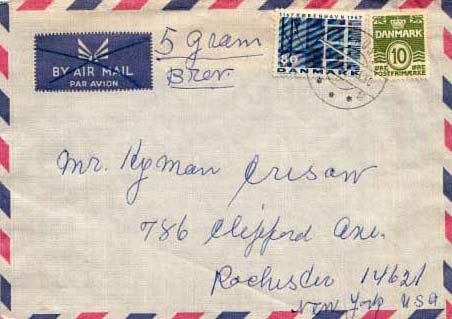 BY AIR MAIL
PAR AVION
5 gram
Brev.
1167 KØBENHAVN 1967
80
DANMARK
DANMARK
10
ØRE ØRE
POSTFRIMÆRKE
Mr. Hyman Crisaw
786 Clifford Ave.
Rochester 14621
New York USA